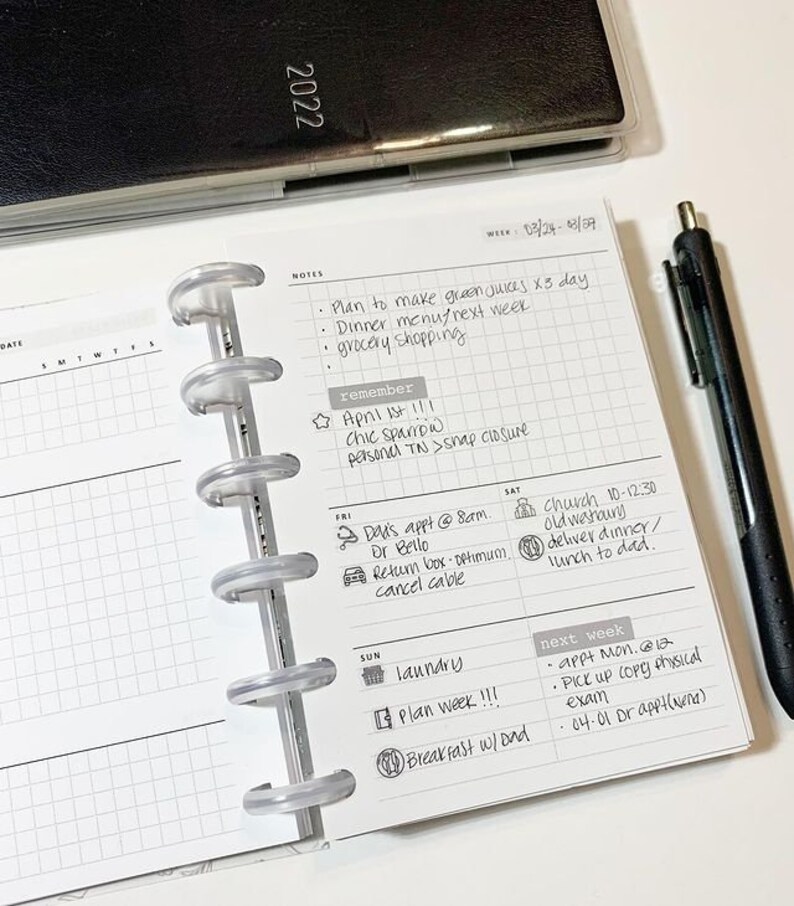 2022
WEEK: 03/24 - 03/27
NOTES
· Plan to make green juices x3 day
· Dinner menu/next week
· grocery shopping
·
remember
April 1st !!!
Chic Sparrow
personal TN > snap closure
DATE
S M T W T F S
FRI
Dad's appt @ 8am.
Dr Bello
Return box - optimum.
cancel cable
SAT
church 10-12:30
old westbury
deliver dinner/
lunch to dad.
SUN
laundry
plan week !!!
Breakfast w/ Dad
next week
· appt Mon. @ 12
· Pick up copy physical
exam
· 04.01 Dr appt (Nena)